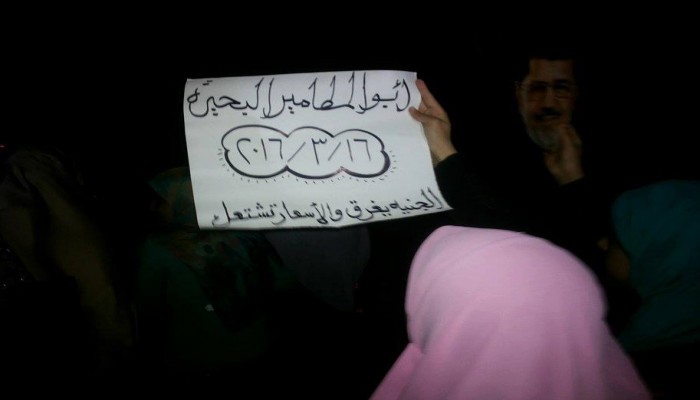 أبو المطامير البحيرة
٢٠١٦/٣/١٦
الجنيه يغرق والأسعار تشتعل